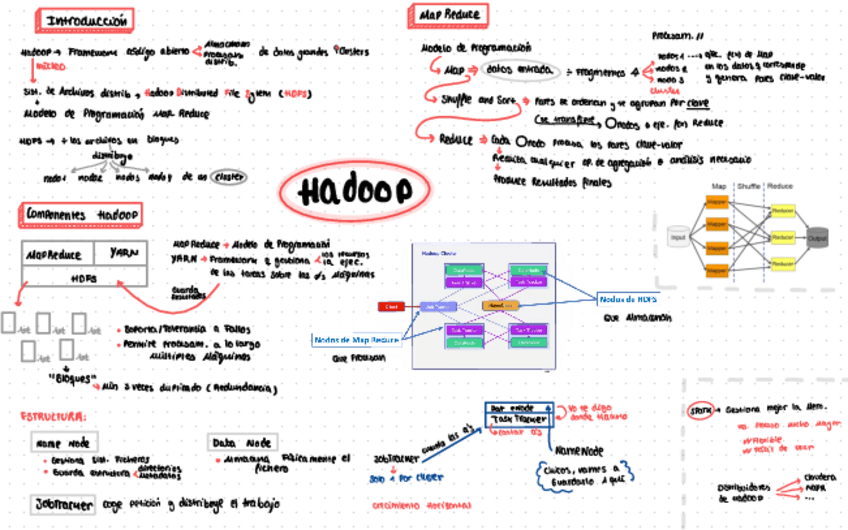 Introducción
Hadoop → Framework código abierto
Almacenan
Procesan
distrib.
de datos grandes
Clusters
núcleo
Sist. de Archivos distrib → Hadoop Distributed File System (HDFS)
Modelo de Programación Map Reduce
HDFS → los archivos en bloques
distribuye
nodo1 nodo2 nodo3 nodo4 de un cluster
Map Reduce
Modelo de Programación
Map → datos entrada ÷ Fragmentos
Procesam. //
nodo1
nodo2
nodo3
cluster
ejec. fºn de Map
en los datos q corresponde
y genera Pares clave-valor
Shuffle and Sort → Pares se ordenan y se agrupan por clave
se transfiere → nodos q ejec. fºn Reduce
Reduce → Cada nodo procesa los pares clave-valor
Realiza cualquier op. de agregación o análisis necesario
Produce Resultados finales
Hadoop
Map Shuffle Reduce
Input
Mapper
Mapper
Mapper
Mapper
Reducer
Reducer
Reducer
Output
Componentes Hadoop
MapReduce YARN
HDFS
MapReduce → Modelo de Programación
YARN → Framework q gestiona
los recursos
la ejec.
de las tareas sobre las Máquinas
Guarda
resultados
.txt .txt .txt .txt
.txt .txt
• Soporta/Tolerancia a Fallos
• Permite Procesam. a lo largo
múltiples Máquinas
"Bloques"
Min 3 veces duplicado (Redundancia)
Hadoop Cluster
Client
Job Tracker
NameNode
DataNode
Task Tracker
DataNode
Task Tracker
Task Tracker
DataNode
Task Tracker
DataNode
Nodos de HDFS
que Almacenan
Nodos de Map Reduce
que Procesan
ESTRUCTURA:
Name Node
• Gestiona Sist. Ficheros
• Guarda estructura
directorios
metadatos
Data Node
• Almacena Físicamente el
fichero
JobTracker coge petición y distribuye el trabajo
JobTracker
Solo 1 por Cluster
crecimiento Horizontal
Data Node
TaskTracker
Yo te digo
NameNode
Chicos, vamos a
Guardarlo aquí
SPARK → Gestiona mejor la Mem.
Flexible
Fácil de usar
Distribuidores
de Hadoop
Cloudera
MAPR
...